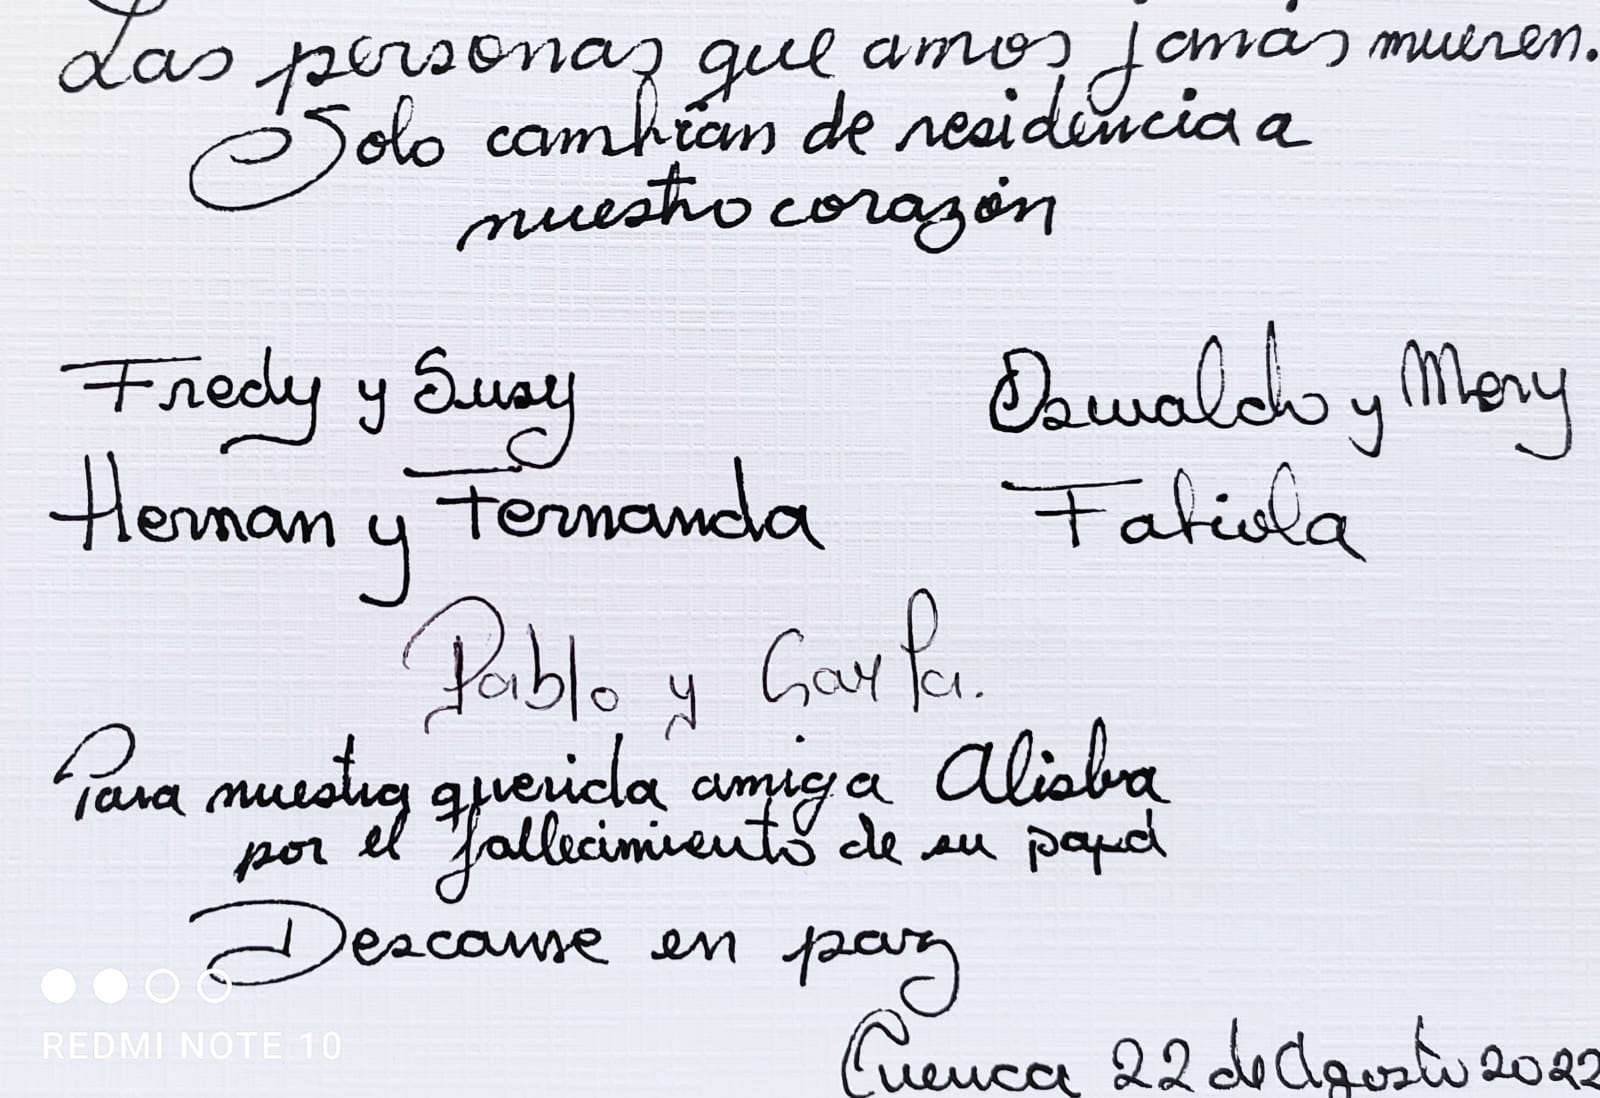 Las personas que amos jamás mueren.
Solo cambian de residencia a
nuestro corazón
Fredy y Susy
Oswaldo y Mery
Hernan y Fernanda
Fabiola
Pablo y Carla.
Para nuestra querida amiga Alisba
por el fallecimiento de su papá
Descanse en paz
Cuenca 22 de Agosto 2022
REDMI NOTE 10